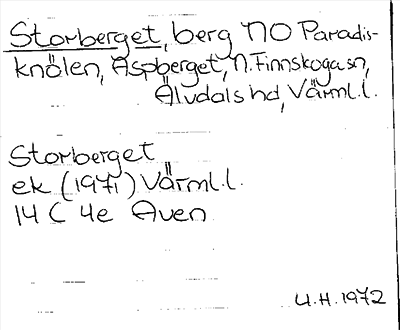 Storberget, berg NO Paradis-
knölen, Aspberget, N. Finnskoga sn,
Älvdals hd, Värml.l.
Storberget
ek (1971) Värml.l.
14 C 4e Aven
U.H. 1972